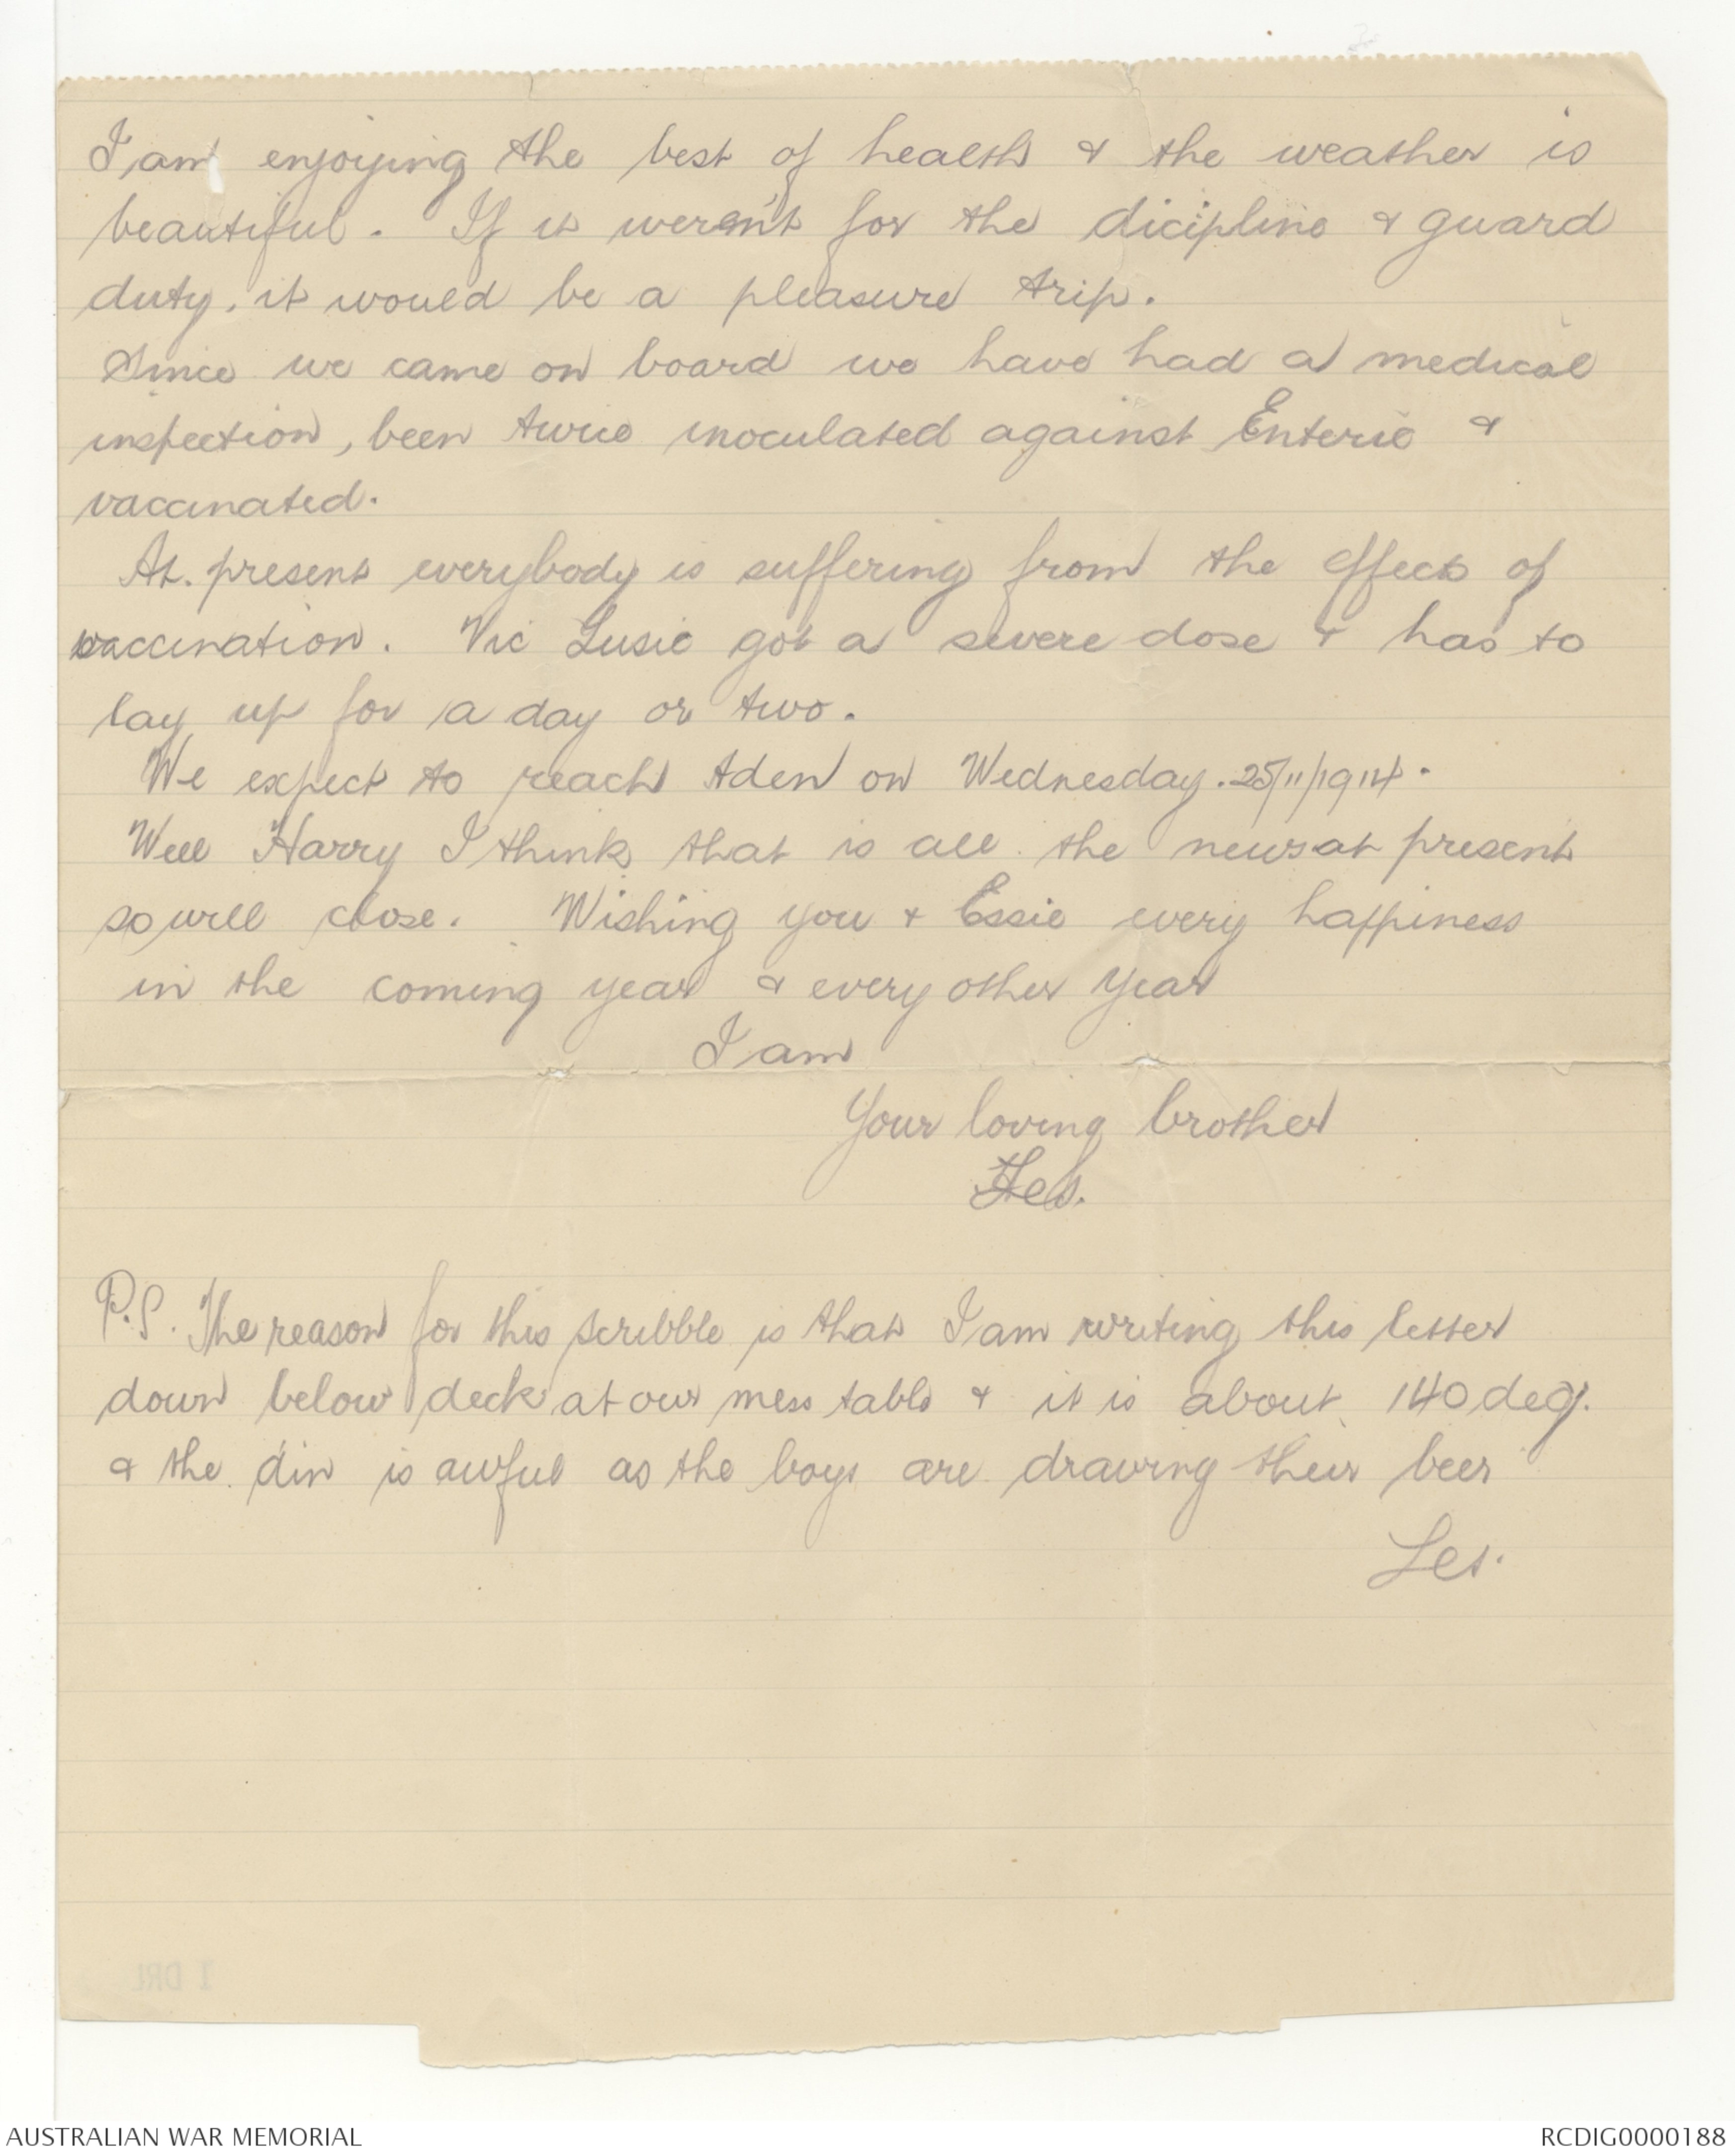 I am enjoying the best of health & the weather is
beautiful. If it weren't for the dicipline & guard
duty, it would be a pleasure trip.
Since we came on board we have had a medical
inspection, been twice inoculated against Enteric &
vaccinated.
At. present everybody is suffering from the effects of
vaccination. Vic Lusic got a severe dose & has to
lay up for a day or two.
We expect to reach Aden on Wednesday. 25/11/1914.
Well Harry I think that is all the news at present
so will close. Wishing you & Essie every happiness
in the coming year & every other year
I am
Your loving brother
Les.
P.S. The reason for this scribble is that I am writing this letter
down below deck at our mess table & it is about 140 deg.
& the din is awful as the boys are drawing their beer
Les.
1 DRL
AUSTRALIAN WAR MEMORIAL
RCDIG0000188